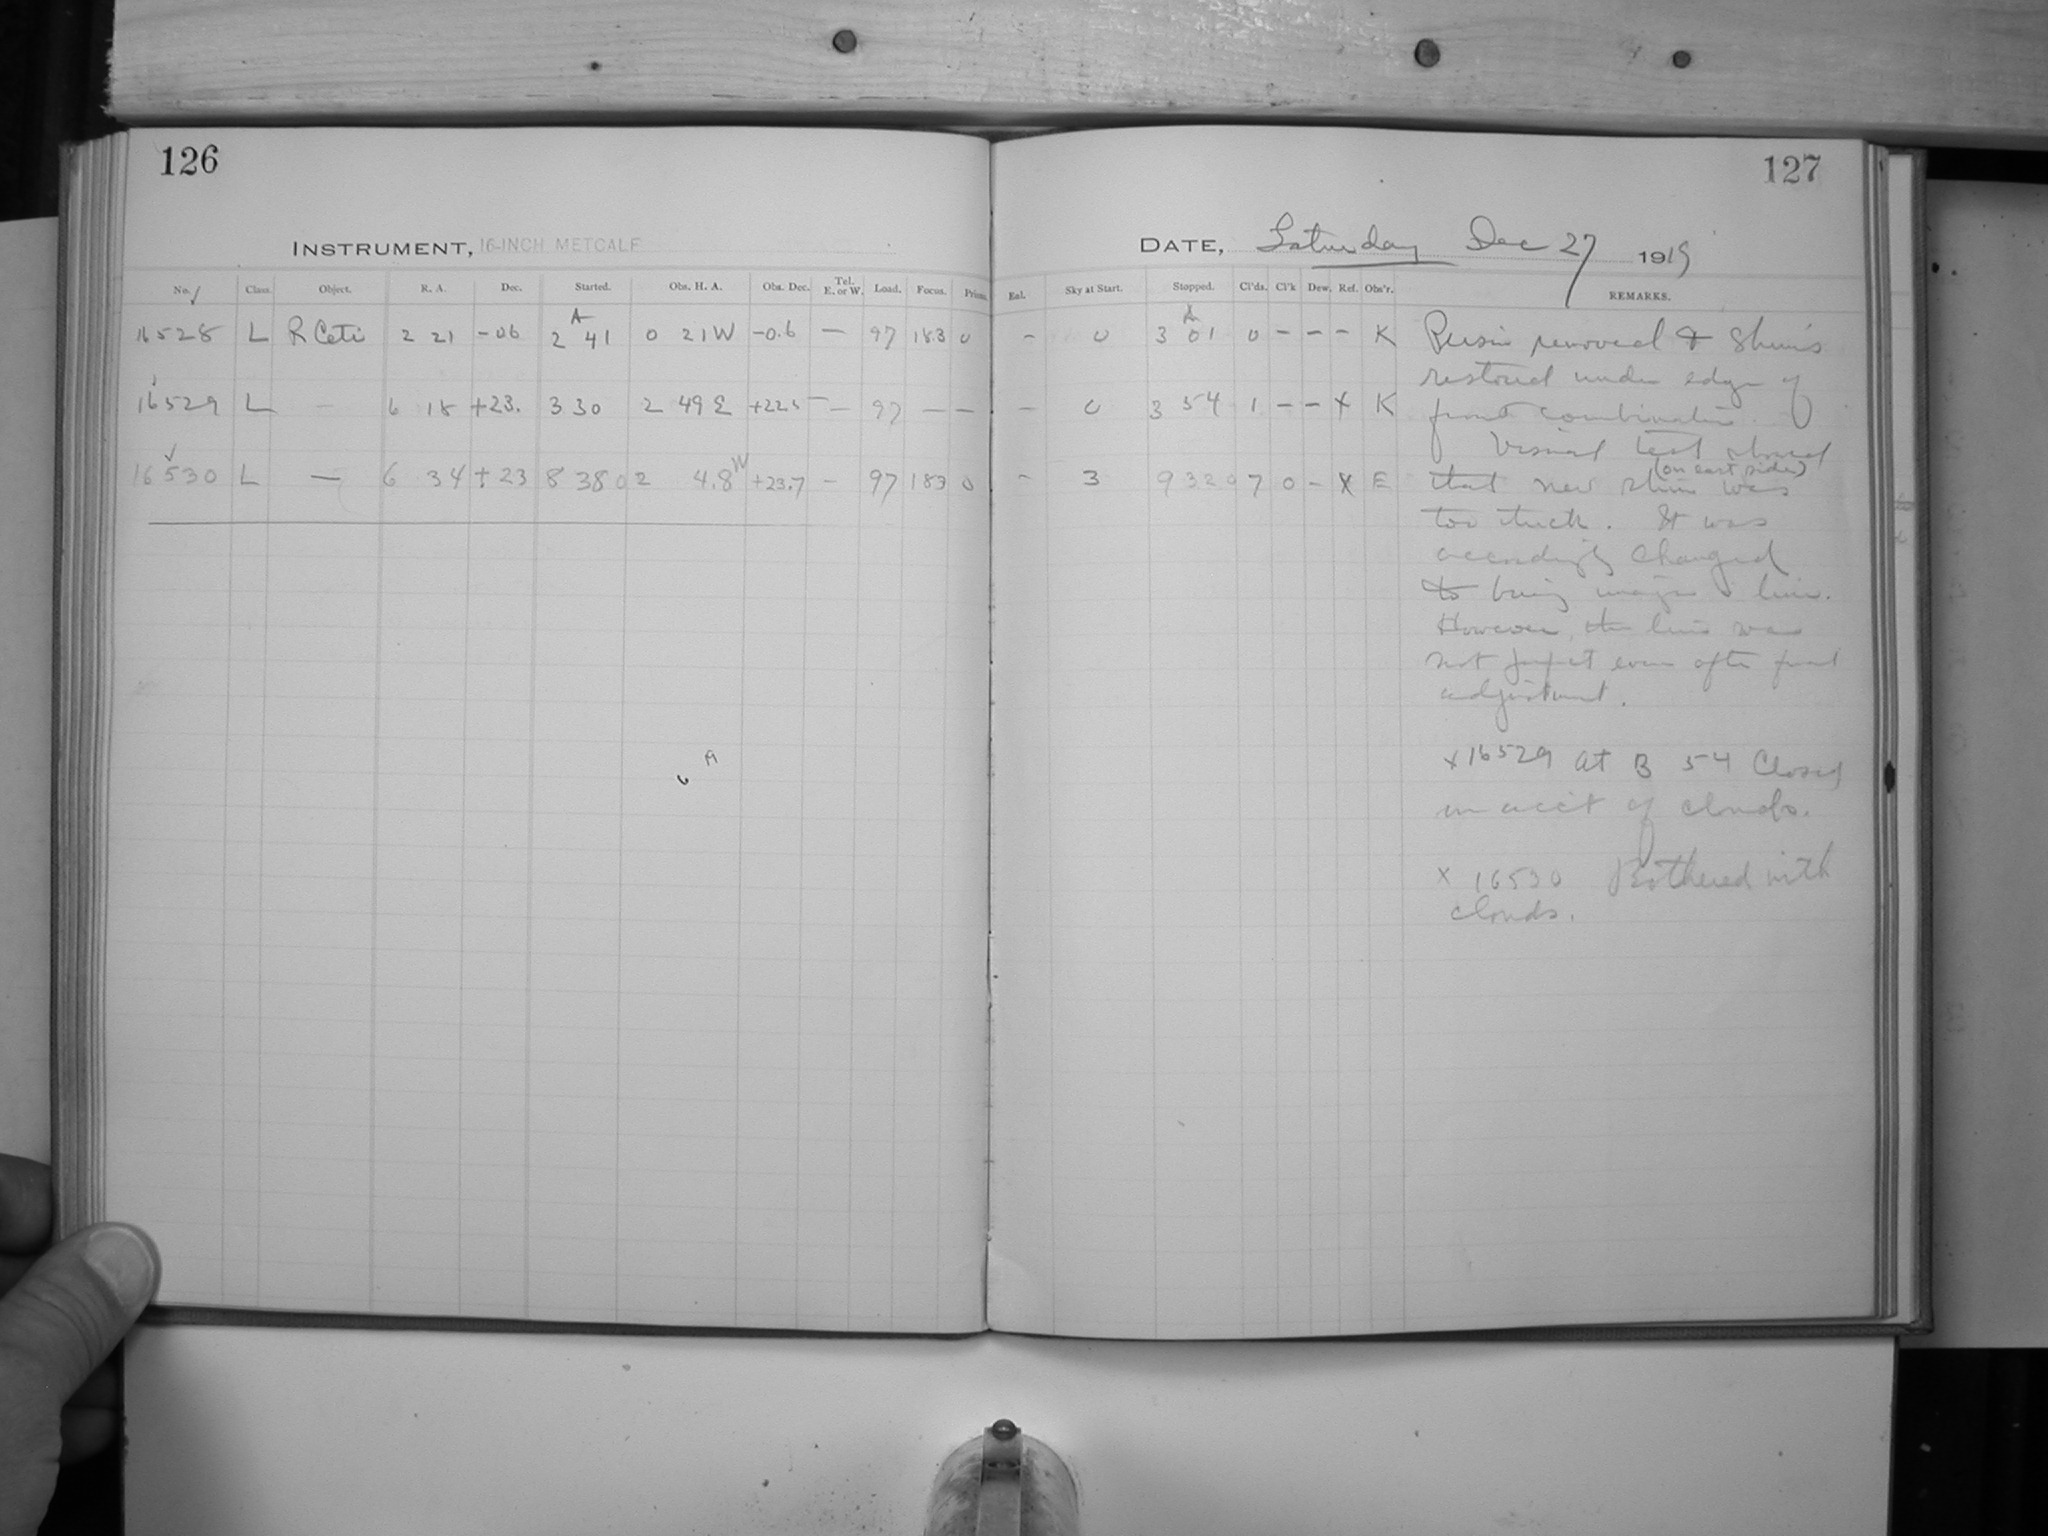 126
127
INSTRUMENT, 16-INCH METCALF
DATE, Saturday Dec 27 1919
No. Class. Object. R. A. Dec. Started. Obs. H. A. Obs. Dec. Tel. E. or W. Load. Focus. Prism. Eal. Sky at Start. Stopped. Cl'ds. Cl'k Dew. Ref. Obs'r. REMARKS.
16528 L R Ceti 2 21 -06 2 41 0 21 W -0.6 — 97 18.3 0 - 0 3 01 0 - - - K
16529 L — 6 18 +23. 3 30 2 49 E +22.5 — 97 — — — 0 3 54 1 - - x K
16530 L — 6 34 +23 8 38 0 2 4.8 W +23.7 - 97 183 0 - 3 9 32 0 7 0 - x E
removed & Shims
restored under edge of
front combination.
Visual test showed
that new shim (on east side) was
too thick. It was
accordingly changed
to bring line.
However, the line was
not perfect even after final
adjustment.
x 16529 at B 54 Closed
on acc't of clouds.
x 16530 Bothered with
clouds.